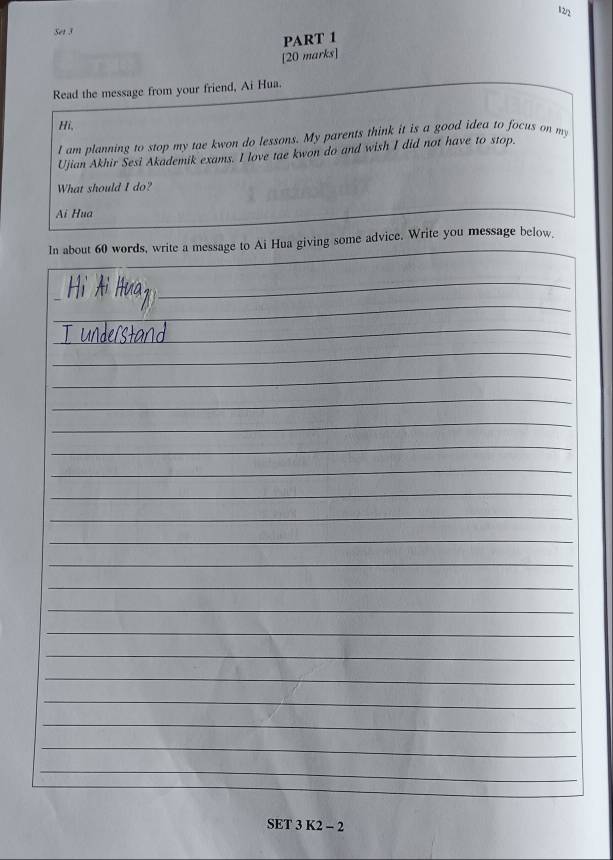 12/2
Set 3
PART 1
[20 marks]
Read the message from your friend, Ai Hua.
Hi,
I am planning to stop my tae kwon do lessons. My parents think it is a good idea to focus on my
Ujian Akhir Sesi Akademik exams. I love tae kwon do and wish I did not have to stop.
What should I do?
Ai Hua
In about 60 words, write a message to Ai Hua giving some advice. Write you message below.
Hi Ai Hua,
I understand
SET 3 K2 – 2